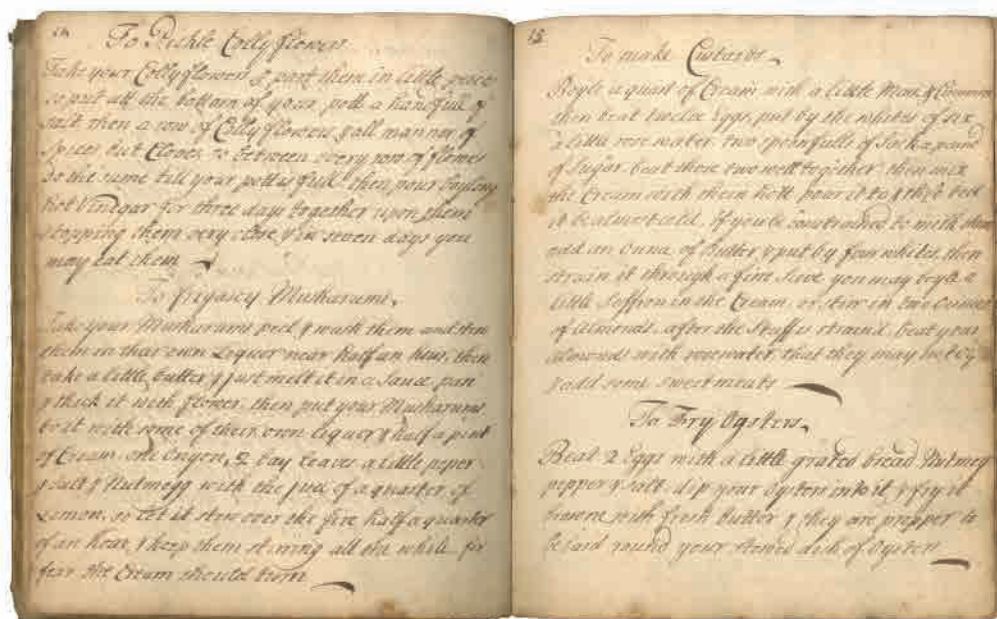 14
To Pickle Collyflowers
Take your Collyflowers & part them in little peices
so put att the bottom of your pott a handfull of
salt then a row of Collyflowers & all manner of
Spices but Cloves so between every row of flowers
do the same till your pott is full then pour boyling
hot Vinegar for three days together upon them
stopping them very close & in seven days you
may eat them
To frigacy Musharums
Take your Musharums peel & wash them and stew
them in their own Liquor near half an hour, then
take a little butter & just melt it in a sauce pan
& thick it with flower, then put your Musharums
to it with some of their own liquor & half a pint
of Cream one Onyon, 2 bay Leaves a little peper
& salt & Nutmegg with the juce of a quarter of
Lemon, so let it stew over the fire half a quarter
of an hour & keep them stirring all the while for
fear the Cream should turn
15
To make Custards
Boyle a quart of Cream with a little Mace &
then beat twelve Eggs, put by the whites of six
a little rose water two spoonfulls of Sack a
of Sugar beat these two well together then mix
the Cream with them
it be almost cold. If you be constrained to milk
add an Ounce of Butter & put by four whites, then
strain it through a fine Sieve you may boyle a
little Saffron in the Cream, or stew in two Ounces
of Almonds after the Stuff is straind beat your
Almonds with rosewater that they may not oyl
& add some sweet meats
To Fry Oysters
Beat 2 Eggs with a little grated bread Nutmeg
pepper & salt dip your Oysters into it & fry
browne with fresh Butter & they are propper to
be laid round your stewed dish of Oysters